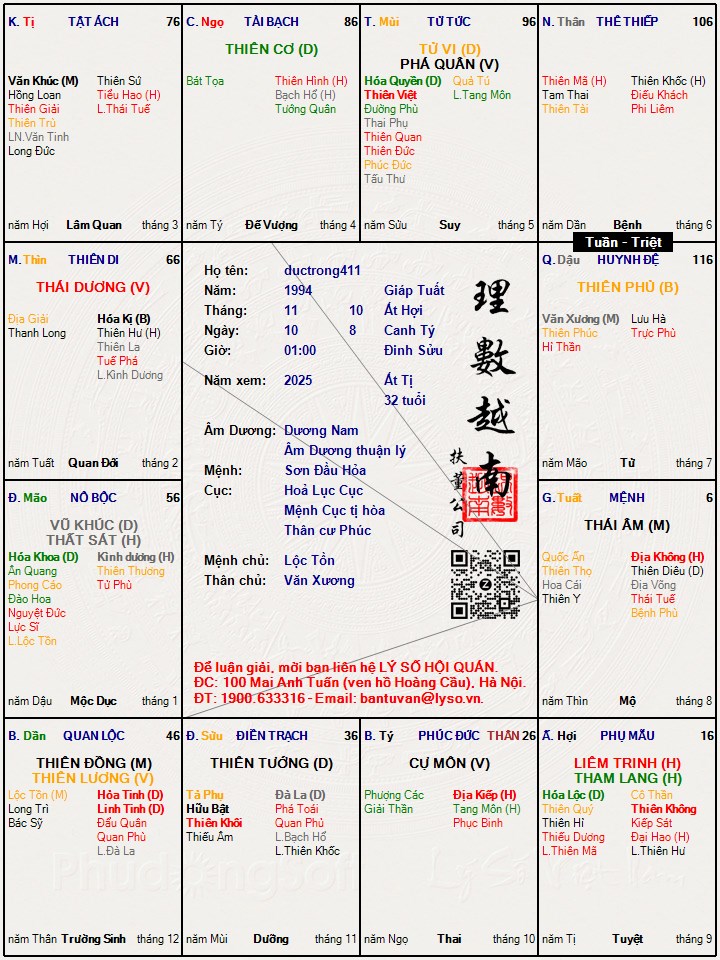 K. Tị TẬT ÁCH 76
Văn Khúc (M) Thiên Sứ
Hồng Loan Tiểu Hao (H)
Thiên Giải L.Thái Tuế
Thiên Trù
LN.Văn Tinh
Long Đức
năm Hợi Lâm Quan tháng 3
C. Ngọ TÀI BẠCH 86
THIÊN CƠ (D)
Bát Tọa Thiên Hình (H)
Bạch Hổ (H)
Tướng Quân
năm Tý Đế Vượng tháng 4
T. Mùi TỬ TỨC 96
TỬ VI (D)
PHÁ QUÂN (V)
Hóa Quyền (D) Quả Tú
Thiên Việt L.Tang Môn
Đường Phù
Thai Phụ
Thiên Quan
Thiên Đức
Phúc Đức
Tấu Thư
năm Sửu Suy tháng 5
N. Thân THÊ THIẾP 106
Thiên Mã (H) Thiên Khốc (H)
Tam Thai Điếu Khách
Thiên Tài Phi Liêm
năm Dần Bệnh tháng 6
Tuần - Triệt
M. Thìn THIÊN DI 66
THÁI DƯƠNG (V)
Địa Giải Hóa Kị (B)
Thanh Long Thiên Hư (H)
Thiên La
Tuế Phá
L.Kình Dương
năm Tuất Quan Đới tháng 2
Họ tên: ductrong411
Năm: 1994 Giáp Tuất
Tháng: 11 10 Ất Hợi
Ngày: 10 8 Canh Tý
Giờ: 01:00 Đinh Sửu
Năm xem: 2025 Ất Tị
32 tuổi
Âm Dương: Dương Nam
Âm Dương thuận lý
Mệnh: Sơn Đầu Hỏa
Cục: Hoả Lục Cục
Mệnh Cục tị hòa
Thân cư Phúc
Mệnh chủ: Lộc Tồn
Thân chủ: Văn Xương
理數越南
扶董公司
Để luận giải, mời bạn liên hệ LÝ SỐ HỘI QUÁN.
ĐC: 100 Mai Anh Tuấn (ven hồ Hoàng Cầu), Hà Nội.
ĐT: 1900.633316 - Email: bantuvan@lyso.vn.
Q. Dậu HUYNH ĐỆ 116
THIÊN PHỦ (B)
Văn Xương (M) Lưu Hà
Thiên Phúc Trực Phù
Hỉ Thần
năm Mão Tử tháng 7
Đ. Mão NÔ BỘC 56
VŨ KHÚC (D)
THẤT SÁT (H)
Hóa Khoa (D) Kình dương (H)
Ân Quang Thiên Thương
Phong Cáo Tử Phù
Đào Hoa
Nguyệt Đức
Lực Sĩ
L.Lộc Tồn
năm Dậu Mộc Dục tháng 1
G. Tuất MỆNH 6
THÁI ÂM (M)
Quốc Ấn Địa Không (H)
Thiên Thọ Thiên Diêu (D)
Hoa Cái Địa Võng
Thiên Y Thái Tuế
Bệnh Phù
năm Thìn Mộ tháng 8
B. Dần QUAN LỘC 46
THIÊN ĐỒNG (M)
THIÊN LƯƠNG (V)
Lộc Tồn (M) Hỏa Tinh (D)
Long Trì Linh Tinh (D)
Bác Sỹ Đẩu Quân
Quan Phù
L.Đà La
năm Thân Trường Sinh tháng 12
Đ. Sửu ĐIỀN TRẠCH 36
THIÊN TƯỚNG (D)
Tả Phụ Đà La (D)
Hữu Bật Phá Toái
Thiên Khôi Quan Phủ
Thiếu Âm L.Bạch Hổ
L.Thiên Khốc
năm Mùi Dưỡng tháng 11
B. Tý PHÚC ĐỨC THÂN 26
CỰ MÔN (V)
Phượng Các Địa Kiếp (H)
Giải Thần Tang Môn (H)
Phục Binh
năm Ngọ Thai tháng 10
Ấ. Hợi PHỤ MẪU 16
LIÊM TRINH (H)
THAM LANG (H)
Hóa Lộc (D) Cô Thần
Thiên Quý Thiên Không
Thiên Hỉ Kiếp Sát
Thiếu Dương Đại Hao (H)
L.Thiên Mã L.Thiên Hư
năm Tị Tuyệt tháng 9